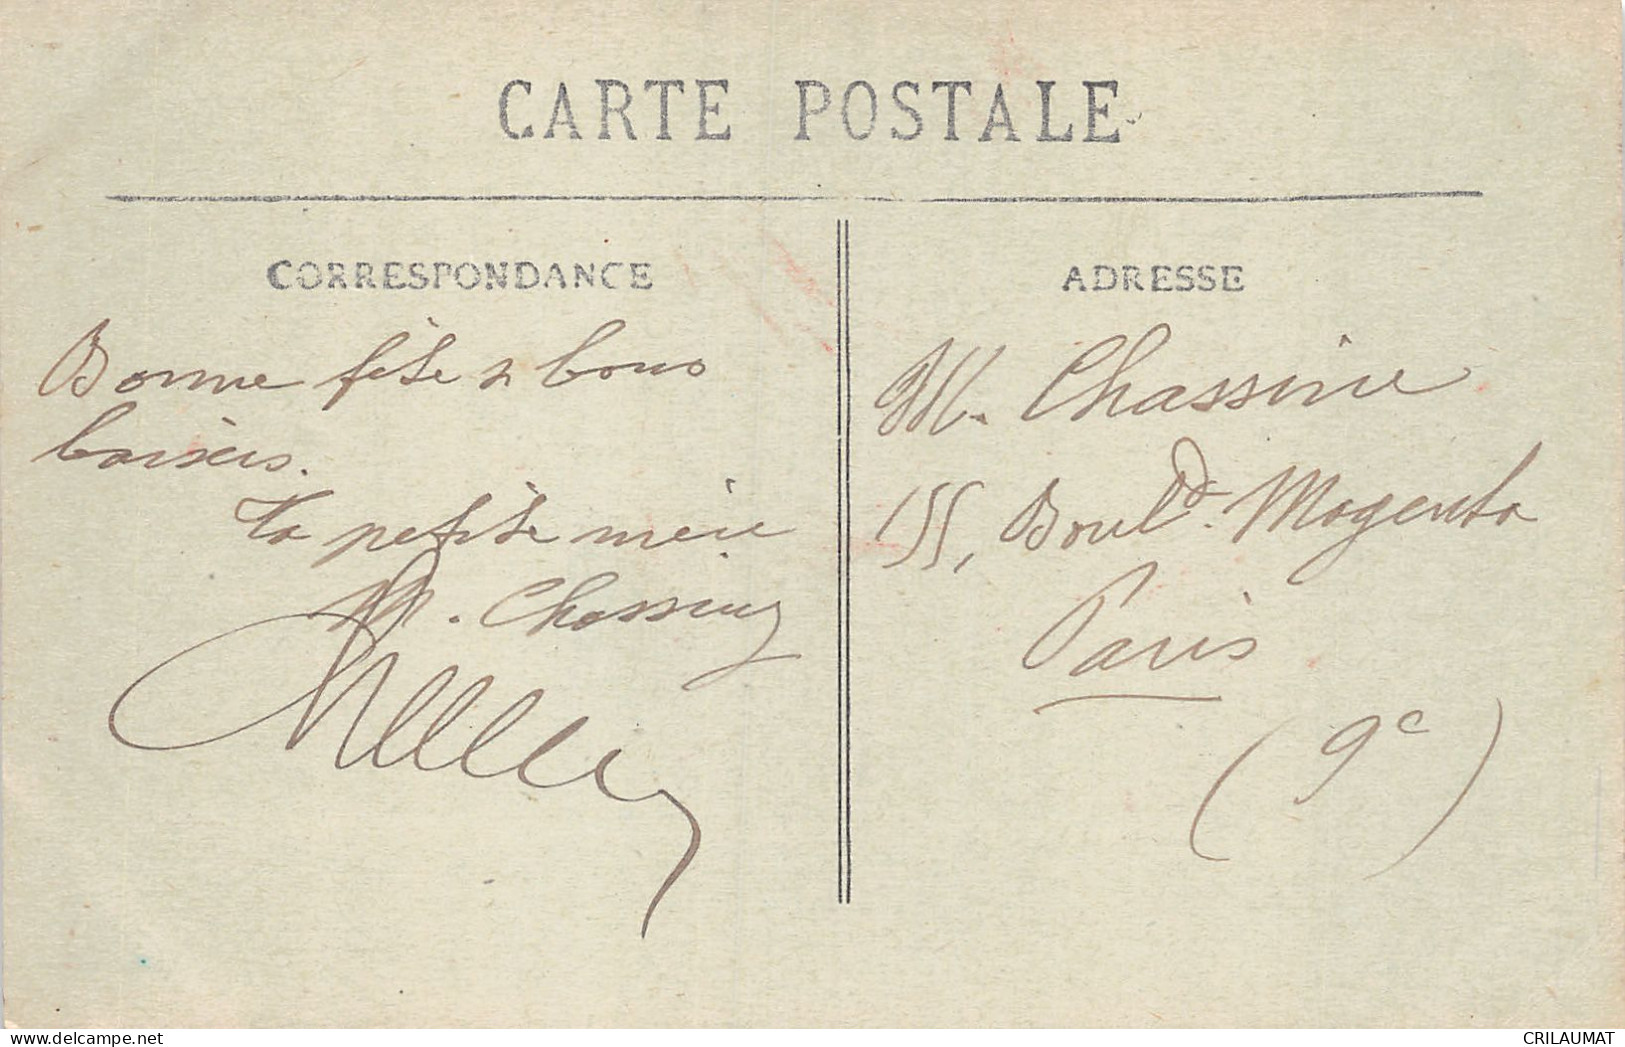 CARTE POSTALE
CORRESPONDANCE
Bonne fête & bons
baisers.
Ta petite mère
M. Chassing
ADRESSE
M. Chassine
155, Boul.d Magenta
Paris
(9e)
CRILAUMAT